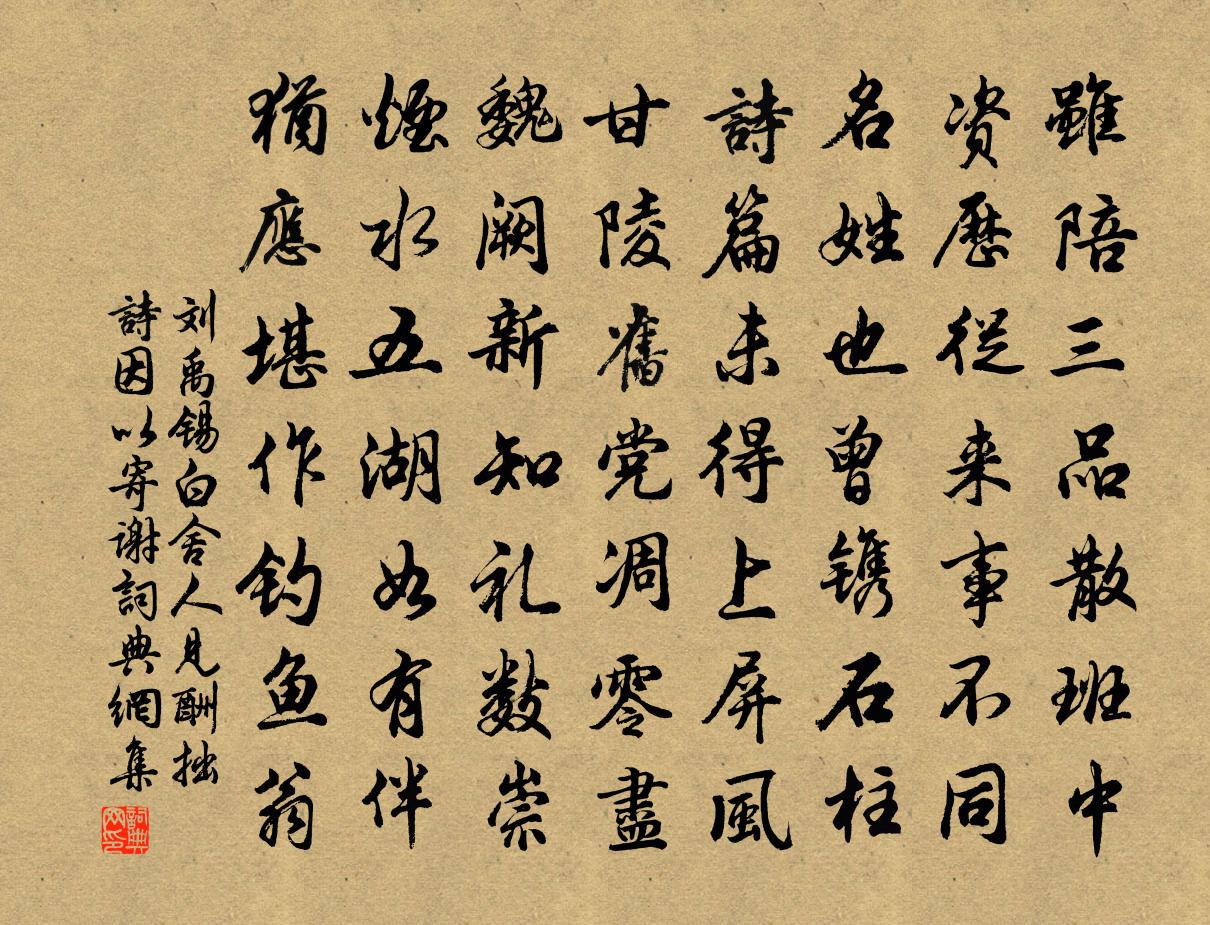 雖陪三品散班中
資歷從来事不同
名姓也曾鐫石柱
詩篇未得上屏風
甘陵舊党凋零盡
魏阙新知礼数崇
煙水五湖如有伴
猶應堪作钓鱼翁
刘禹锡白舍人見酬拙
詩因以寄谢詞典網集
詞典网印